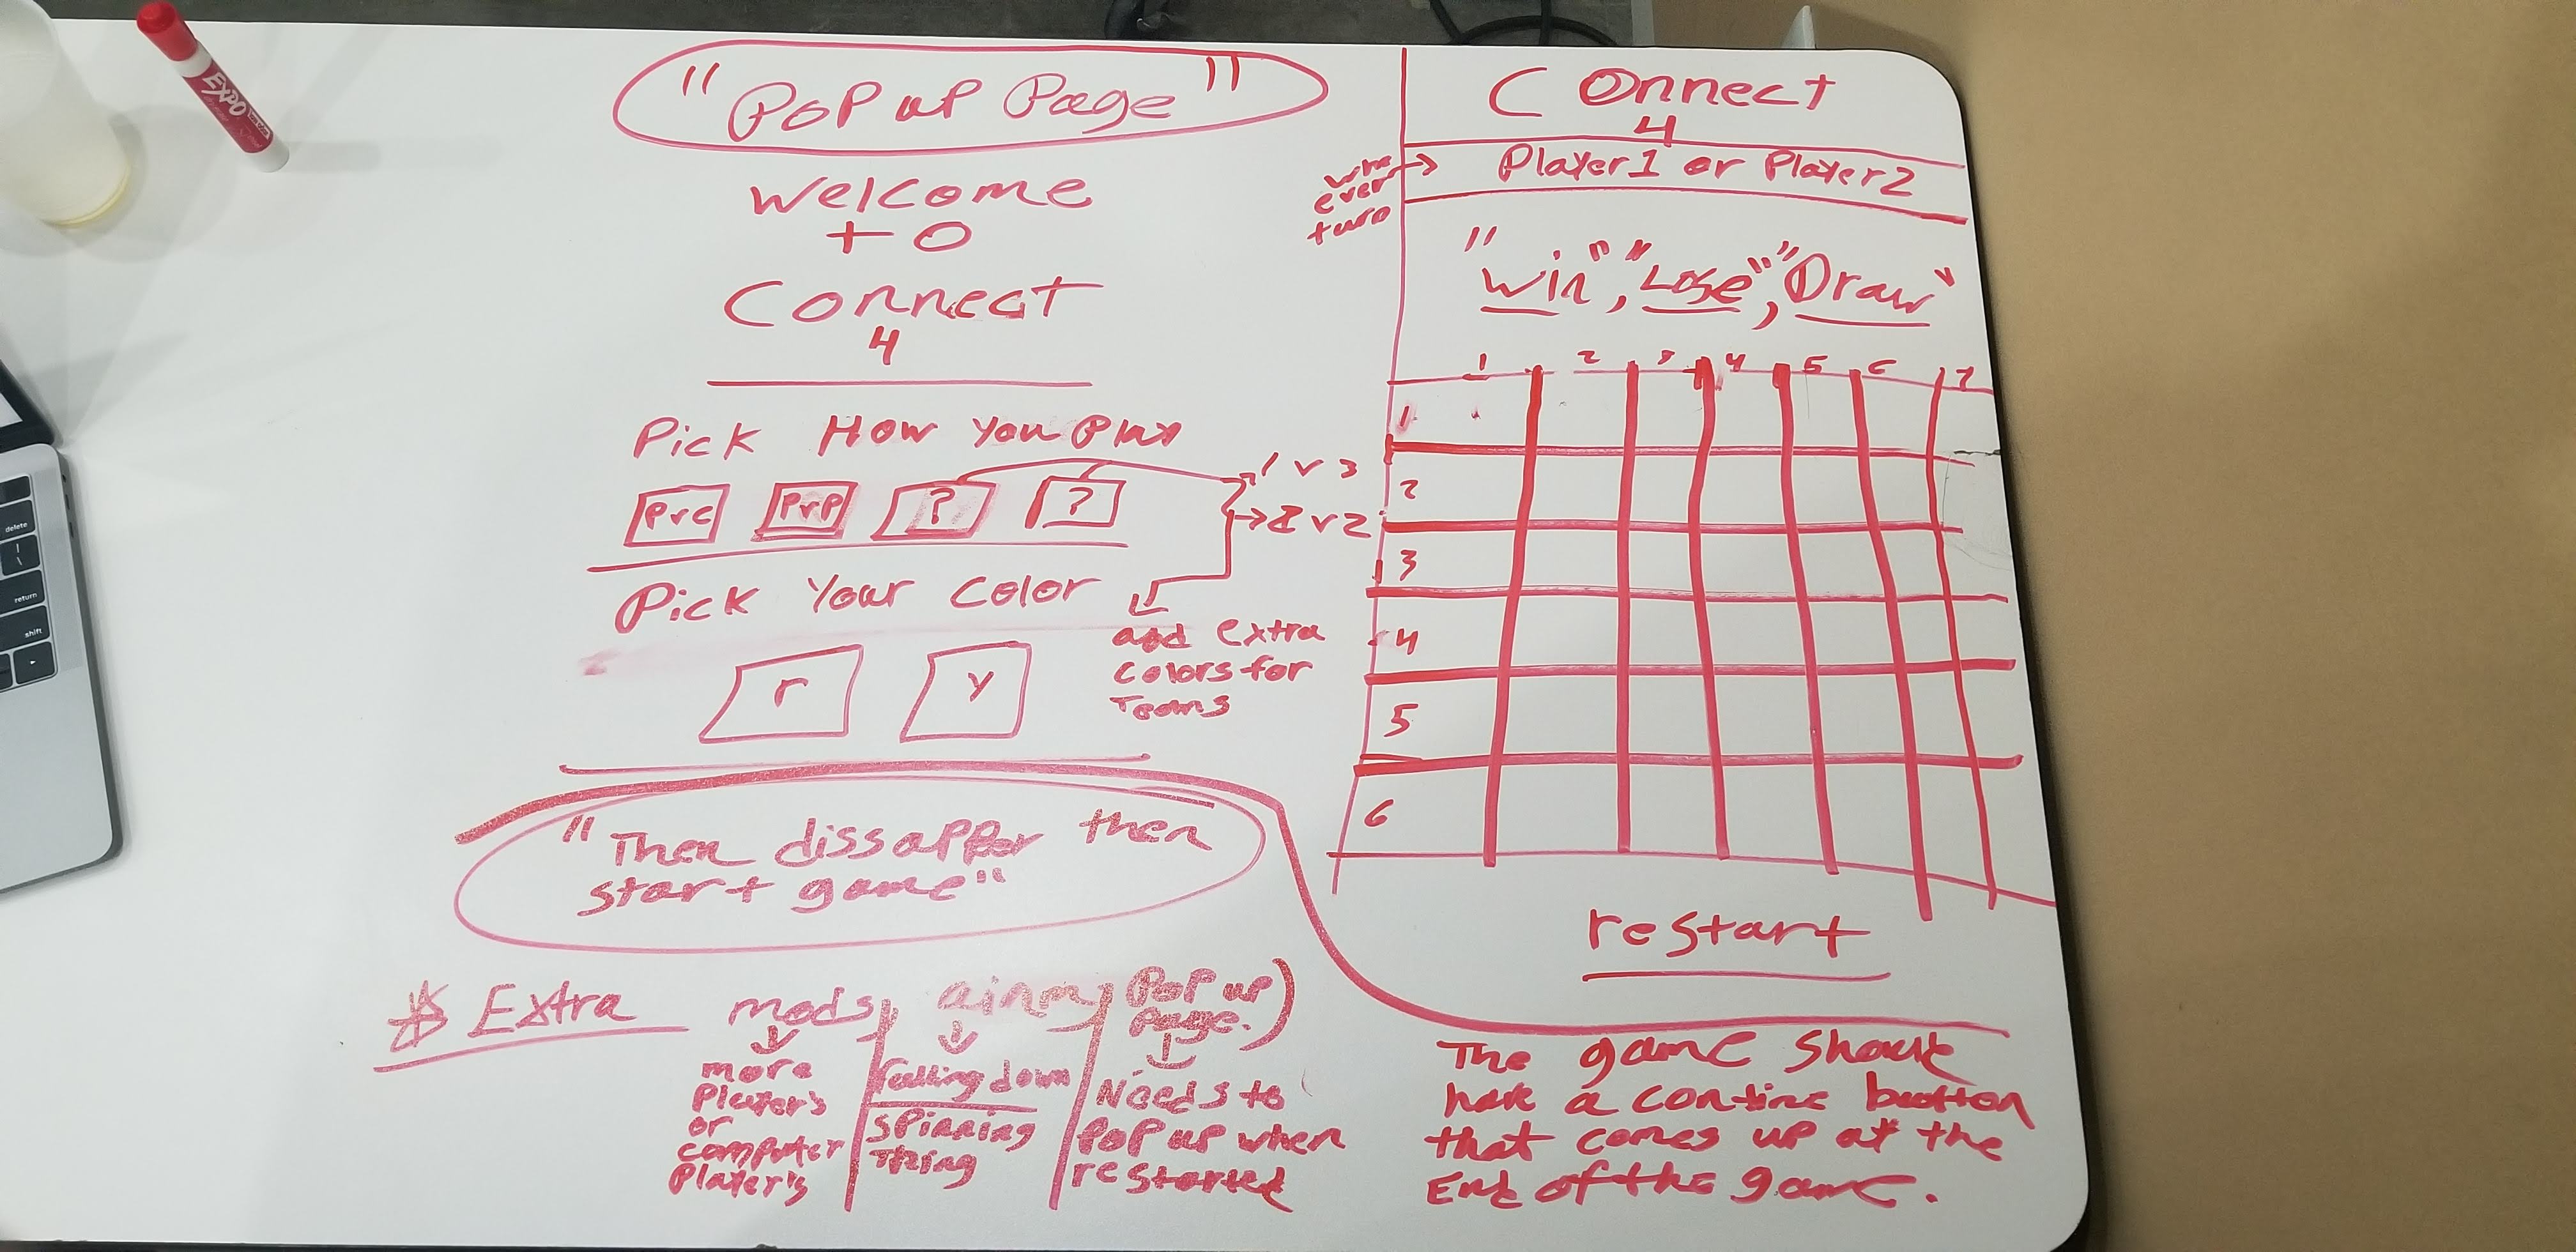 "Pop up Page"
Welcome
to
Connect
4
Pick How you Play
PVC PVP ? ?
1 V 3
2 V 2
Pick Your Color
r y
and extra
colors for
Teams
"Then dissapper then
start game"
* Extra mods, aimm, (pop up
page.)
more
players
or
computer
players
Falling down
spining
thing
Needs to
Pop up when
restarted
Connect
4
who
ever
turn
Player 1 or Player 2
"Win", "Lose", "Draw"
1 2 3 4 5 6 7
1
2
3
4
5
6
restart
The game should
have a contine button
that comes up at the
End of the game.
EXPO
delete
return
shift